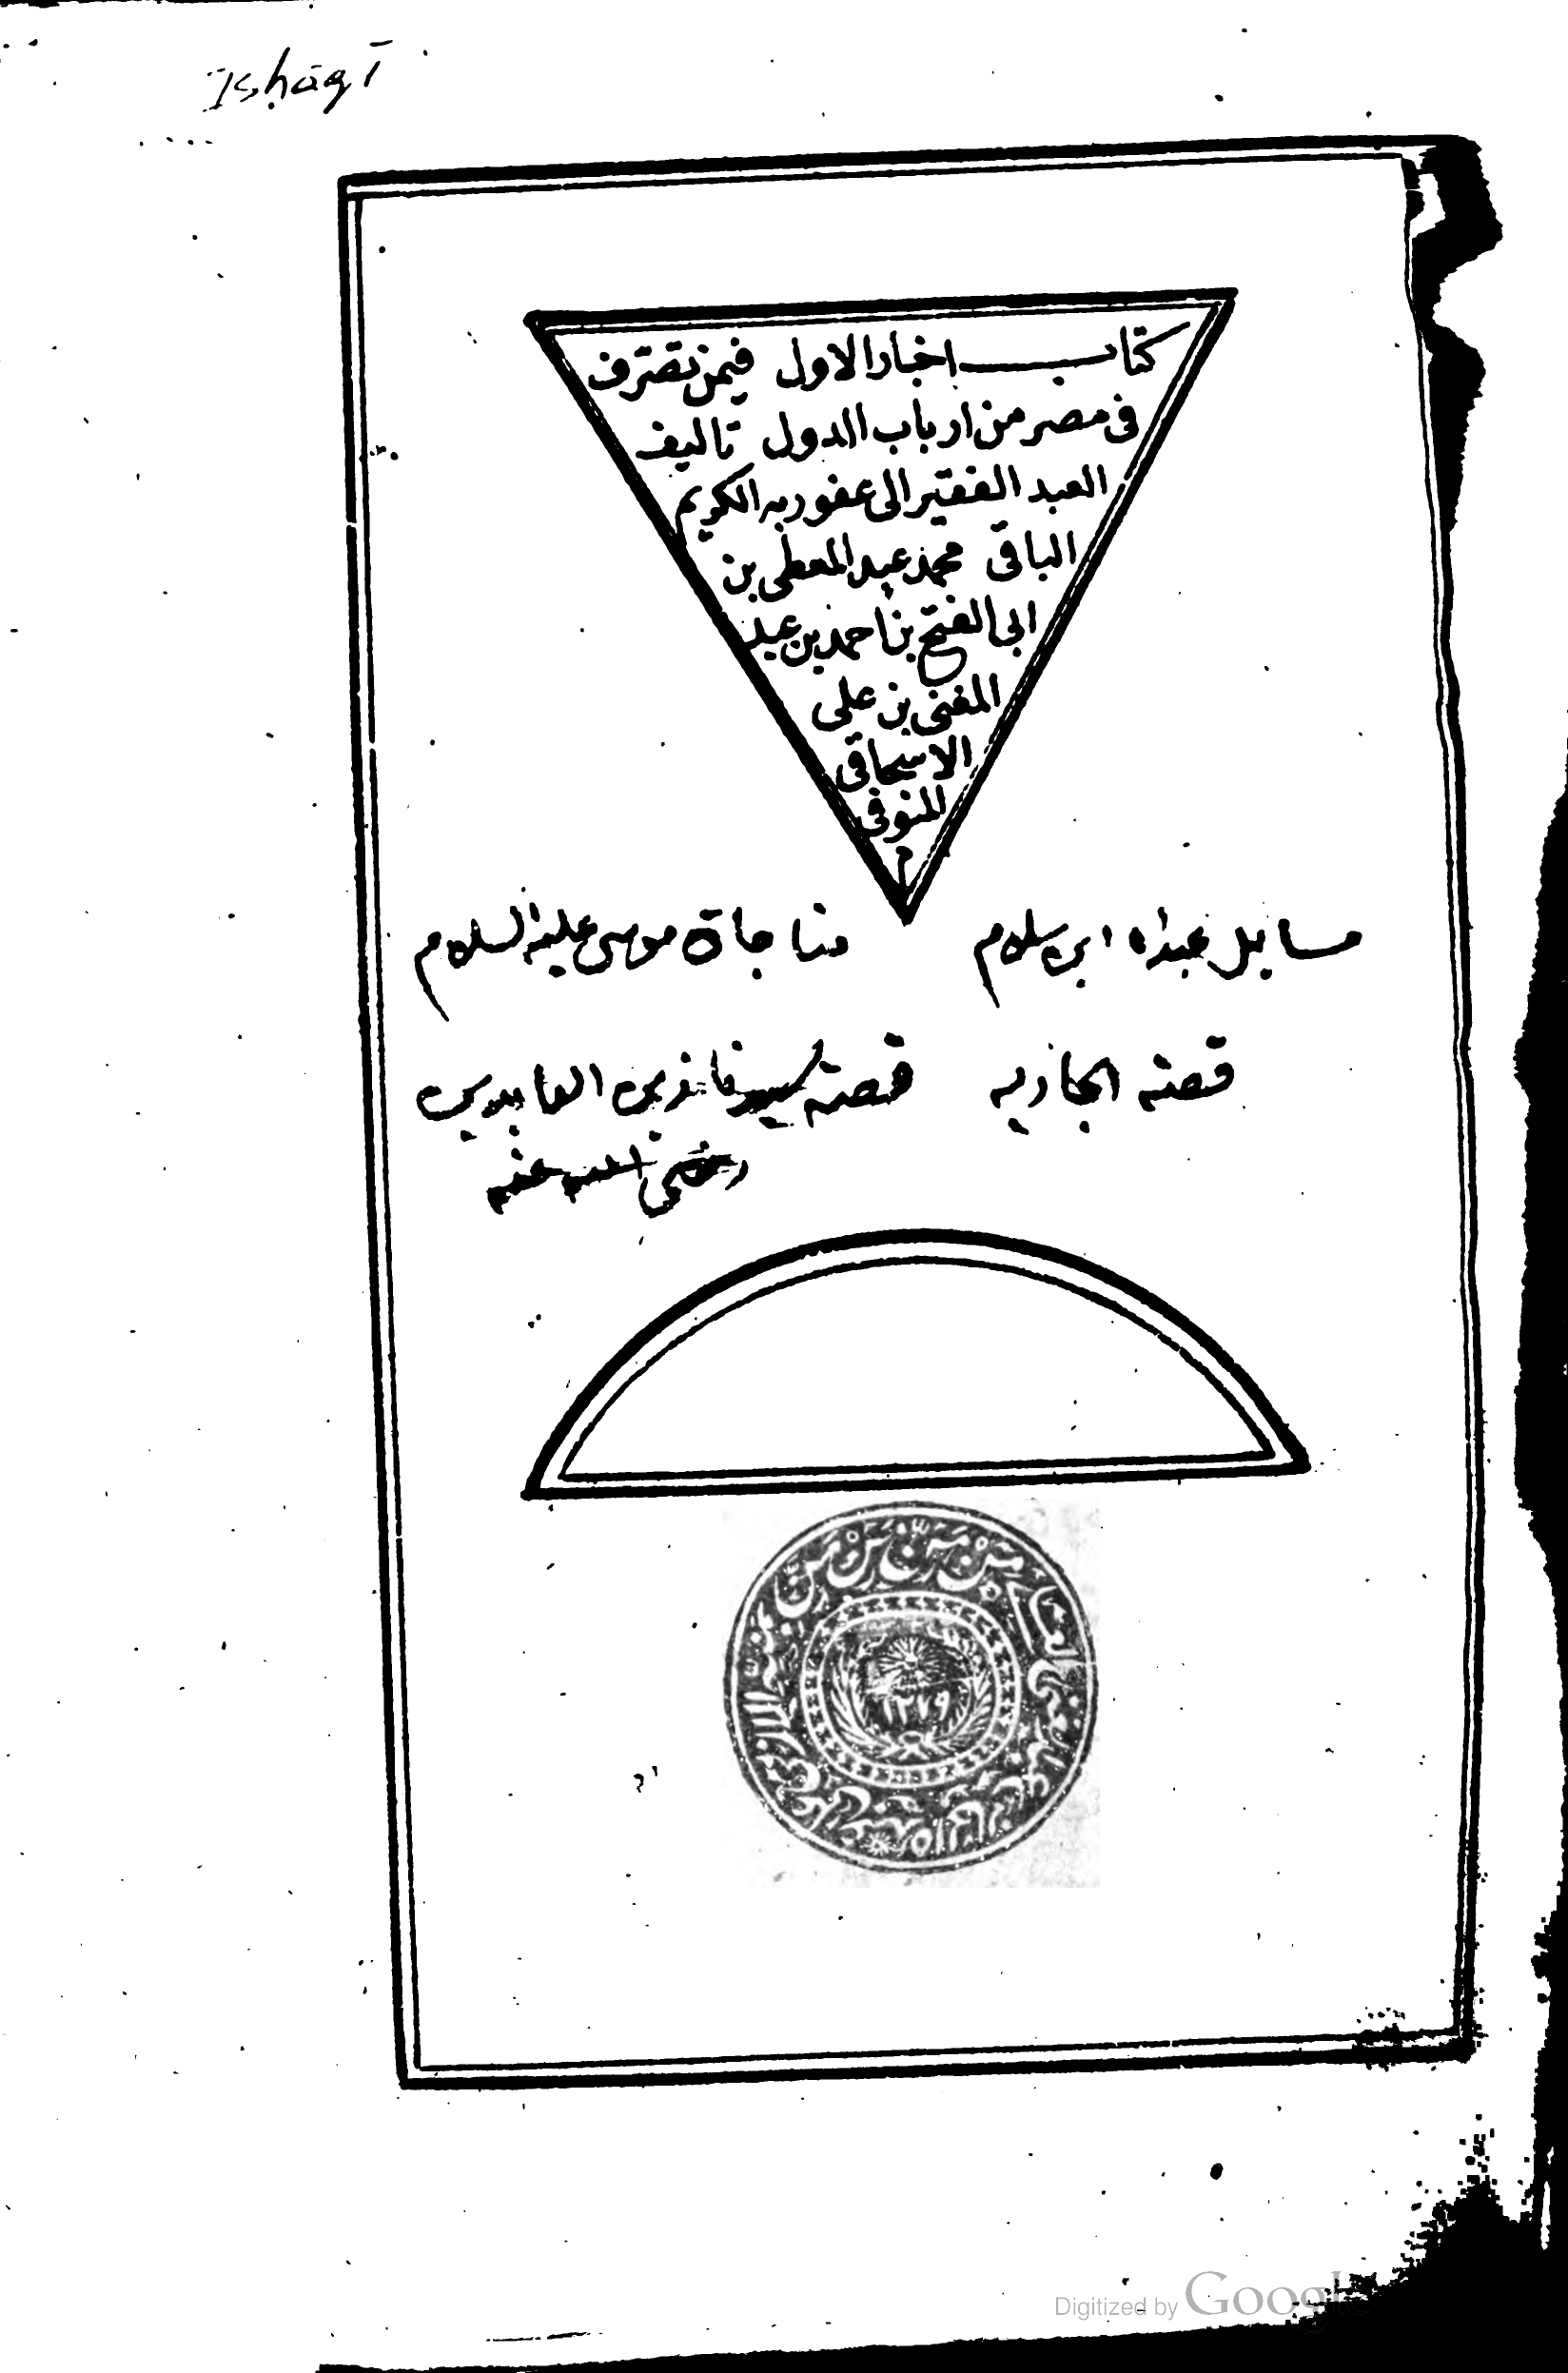 Isḥāqī
كتاب اخبار الاول فيمن تصرف
فى مصر من ارباب الدول تاليف
العبد الفقير الى عفو ربه الكريم
الباقى محمد عبد المعطى بن
ابى الفتح بن احمد بن عبد
المغنى بن على
الاسحاقى
المنوفى
م
مسايل عبدالله ابن سلام مناجاة موسى عليه السلام
قصة الجاريه قصة سيدنا زين العابدين
رضى الله عنه
١٢٧٩
Digitized by Google